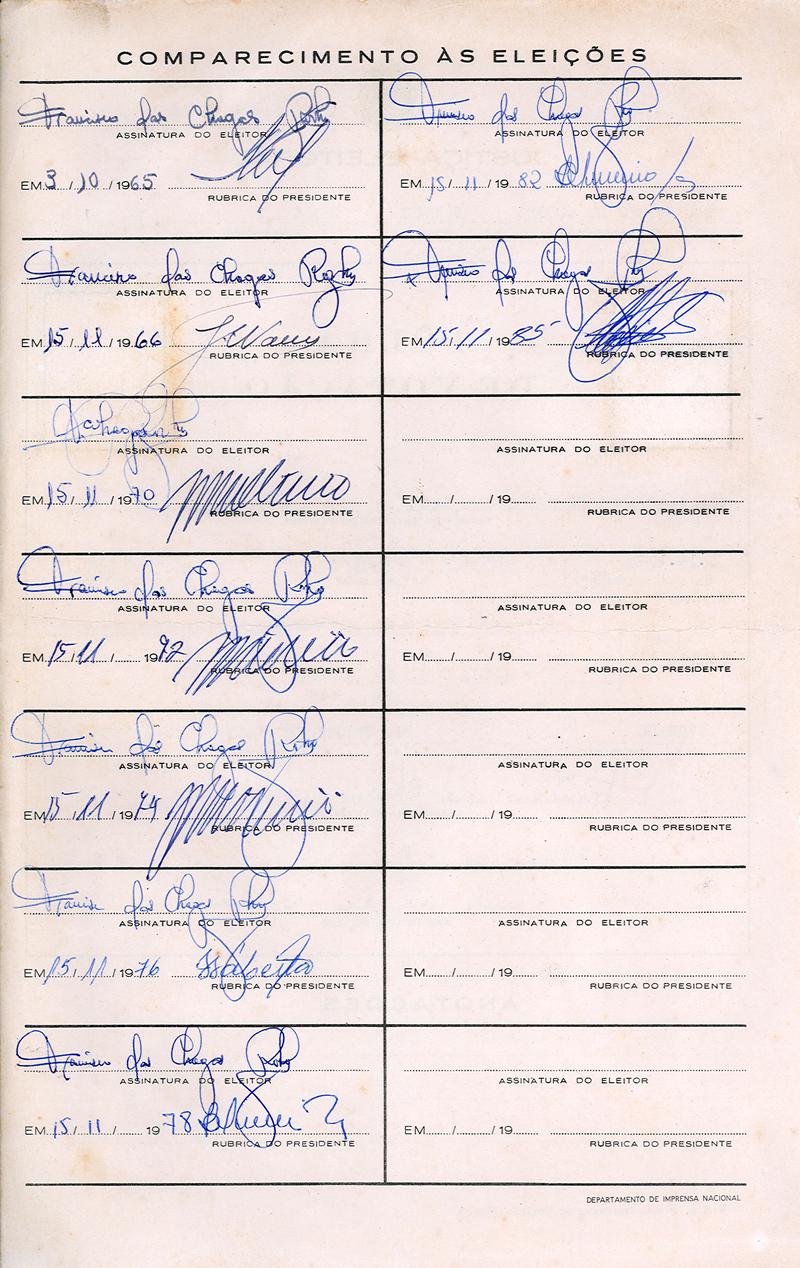 COMPARECIMENTO ÀS ELEIÇÕES
Francisco das Chagas
ASSINATURA DO ELEITOR
EM 3 / 10 / 1965
RUBRICA DO PRESIDENTE
Francisco das Chagas
ASSINATURA DO ELEITOR
EM 15 / 11 / 1966
RUBRICA DO PRESIDENTE
ASSINATURA DO ELEITOR
EM 15 / 11 / 1970
RUBRICA DO PRESIDENTE
Francisco das Chagas
ASSINATURA DO ELEITOR
EM 15 / 11 / ....... 1972
RUBRICA DO PRESIDENTE
Francisco das Chagas
ASSINATURA DO ELEITOR
EM 15 / 11 / 1974
RUBRICA DO PRESIDENTE
Francisco das Chagas
ASSINATURA DO ELEITOR
EM 15 / 11 / 1976
RUBRICA DO PRESIDENTE
Francisco das Chagas
ASSINATURA DO ELEITOR
EM 15 / 11 / ....... 1978
RUBRICA DO PRESIDENTE
Francisco das Chagas
ASSINATURA DO ELEITOR
EM 15 / 11 / 19 82
RUBRICA DO PRESIDENTE
Francisco das Chagas
ASSINATURA DO ELEITOR
EM 15 / 11 / 1985
RUBRICA DO PRESIDENTE
ASSINATURA DO ELEITOR
EM....../....../ 19......
RUBRICA DO PRESIDENTE
ASSINATURA DO ELEITOR
EM....../....../ 19......
RUBRICA DO PRESIDENTE
ASSINATURA DO ELEITOR
EM....../....../ 19......
RUBRICA DO PRESIDENTE
ASSINATURA DO ELEITOR
EM....../....../ 19......
RUBRICA DO PRESIDENTE
ASSINATURA DO ELEITOR
EM....../....../ 19......
RUBRICA DO PRESIDENTE
DEPARTAMENTO DE IMPRENSA NACIONAL